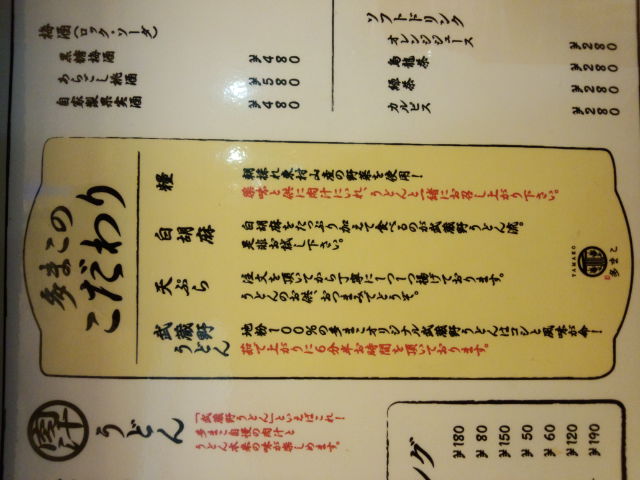 梅酒(ロック・ソーダ)
黒糖梅酒 ¥480
あらごし桃酒 ¥580
自家製果実酒 ¥480
ソフトドリンク
オレンジジュース ¥280
烏龍茶 ¥280
緑茶 ¥280
カルピス ¥280
多まこの
こだわり
糧
朝採れ東村山産の野菜を使用!
薬味と供に肉汁にいれ、うどんと一緒にお召し上がり下さい。
白胡麻
白胡麻をたっぷり加えて食べるのが武蔵野うどん流。
是非お試し下さい。
天ぷら
注文を頂いてから丁寧に一つ一つ揚げております。
うどんのお供、おつまみでどうぞ。
武蔵野
うどん
地粉100%の多まこオリジナル武蔵野うどんはコシと風味が命!
茹で上がりに6分半お時間を頂いております。
TAMAKO
多まこ
肉汁うどん
「武蔵野うどん」といえばこれ!
多まこ自慢の肉汁と
うどん本来の味が楽しめます。
ング
¥180
¥80
¥150
¥50
¥60
¥120
¥190